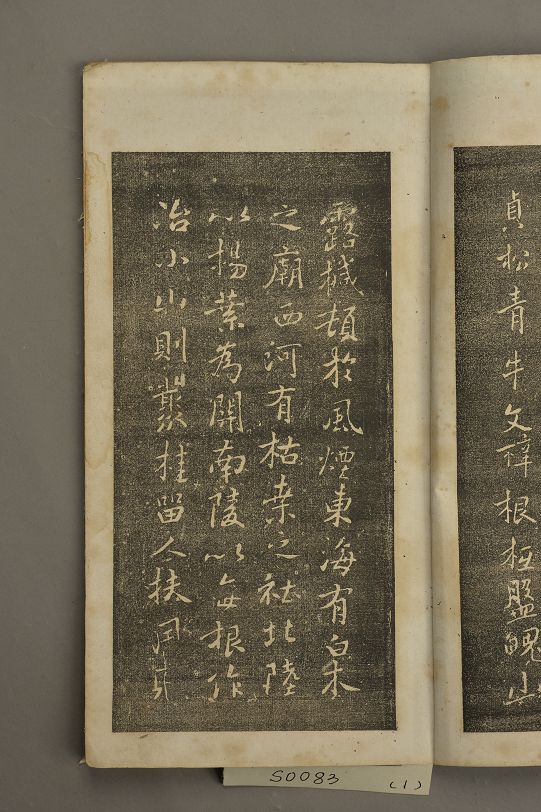 貞松青牛文根柢盤魄山
露撼頓於風煙東海有白木
之廟西河有枯桑之社北陸
以楊葉為關南陵以每根作
冶小山則叢桂留人扶風
S0083 (1)